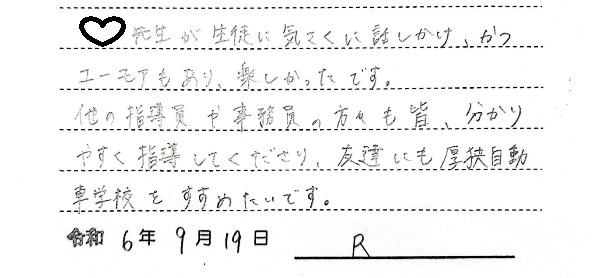 ♡先生が生徒に気さくに話しかけ、かつ
ユーモアもあり、楽しかったです。
他の指導員や事務員の方々も皆、分かり
やすく指導してくださり、友達にも厚狭自動
車学校をすすめたいです。
令和 6年 9月 19日 R